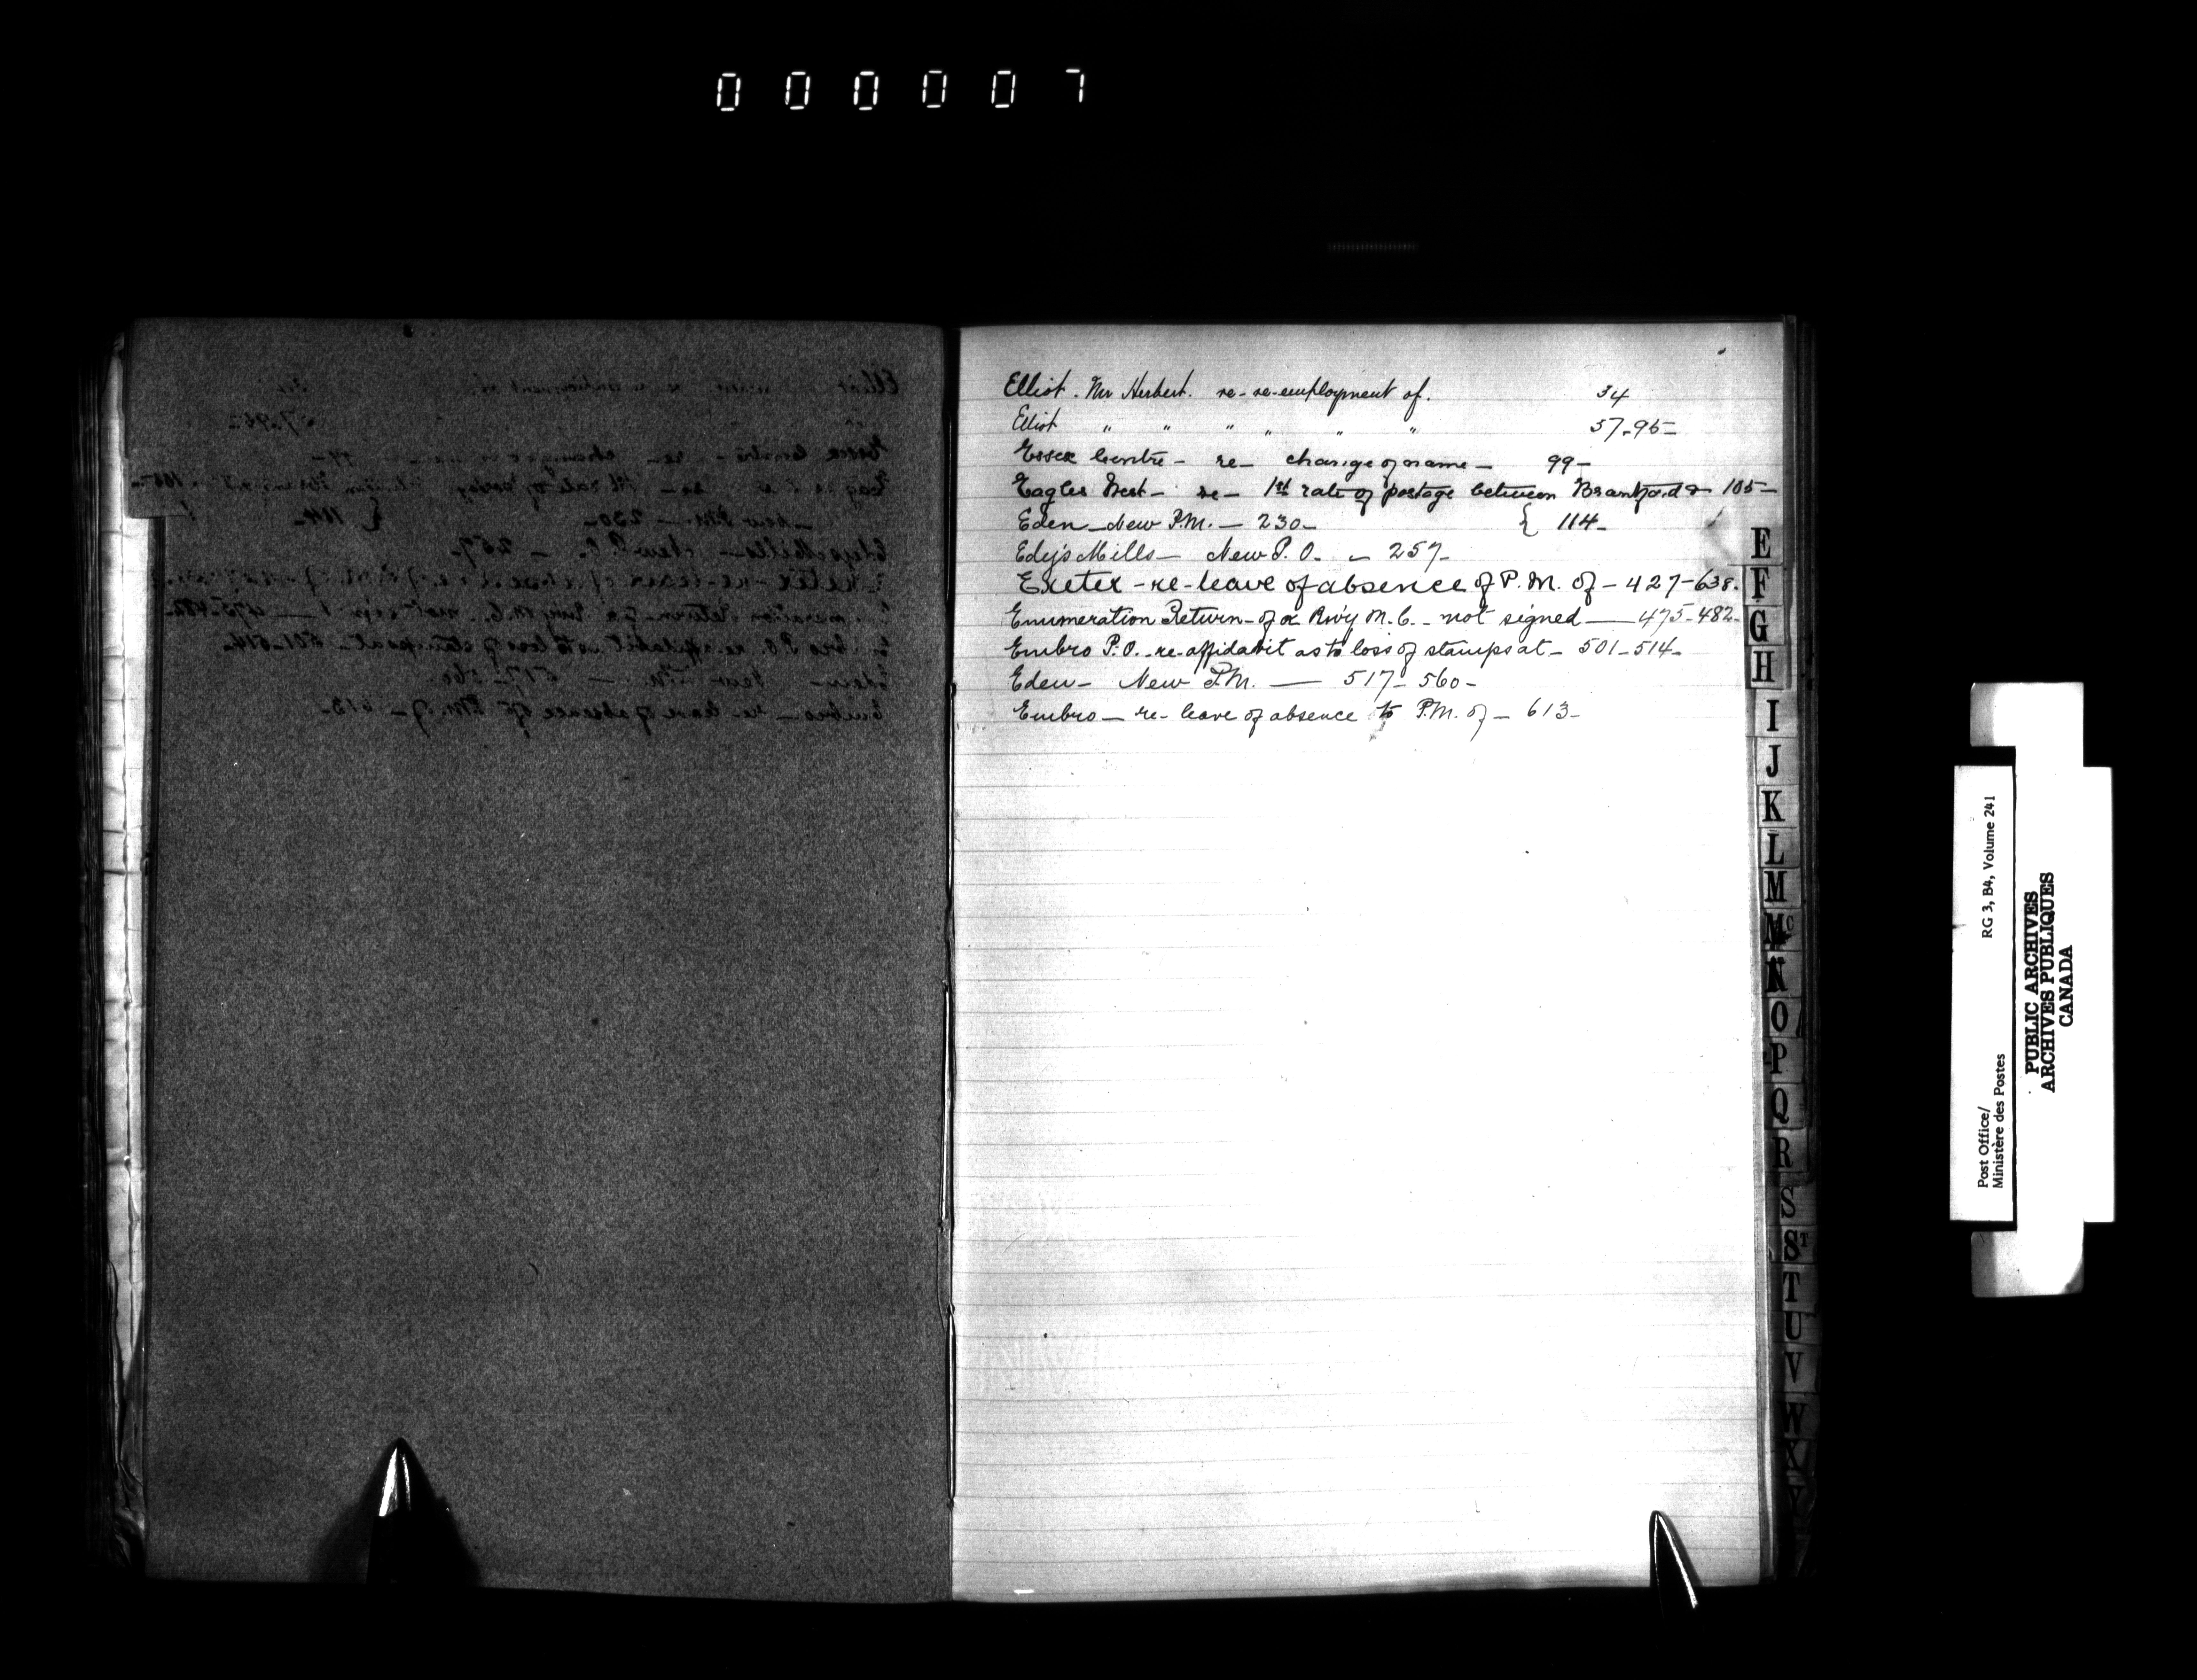 000007
Elliot. Mr Herbert. re- re-employment of. 34
Elliot " " " " " " 57-95-
Essex Centre - re- change of name - 99-
Eagles Nest - re- 1st rate of postage between Brantford & 105-
Eden - New P.M. - 230- { 114-
Edy's Mills - New P.O. - 257-
Exeter - re- leave of absence of P.M. of - 427-638.
Enumeration Return - of a Rwy M.C. - not signed - 475-482-
Embro P.O. - re- affidavit as to loss of stamps at - 501-514-
Eden - New P.M. - 517-560-
Embro - re- leave of absence to P.M. of - 613-
E
F
G
H
I
J
K
L
M
Mc
N
O
P
Q
R
S
ST
T
U
V
W
X
Y
Post Office/ RG 3, B4, Volume 241
Ministère des Postes
PUBLIC ARCHIVES
ARCHIVES PUBLIQUES
CANADA